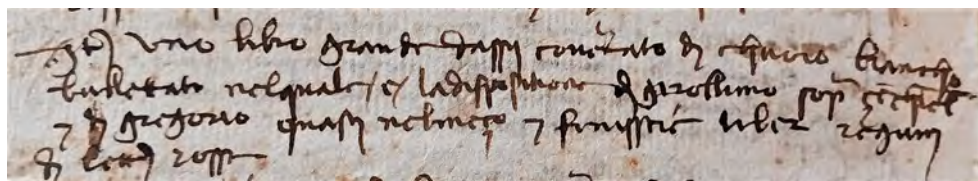 Ite) uno libro grande dassj covertato dj chuoio biancho
bullettato nelquale / e / ladispositione dj girollimo sop(r) ezechiel
⁊ dj gregorio quasi nelmeço ⁊ finisscie liber regum
dj lett(er)e rosse